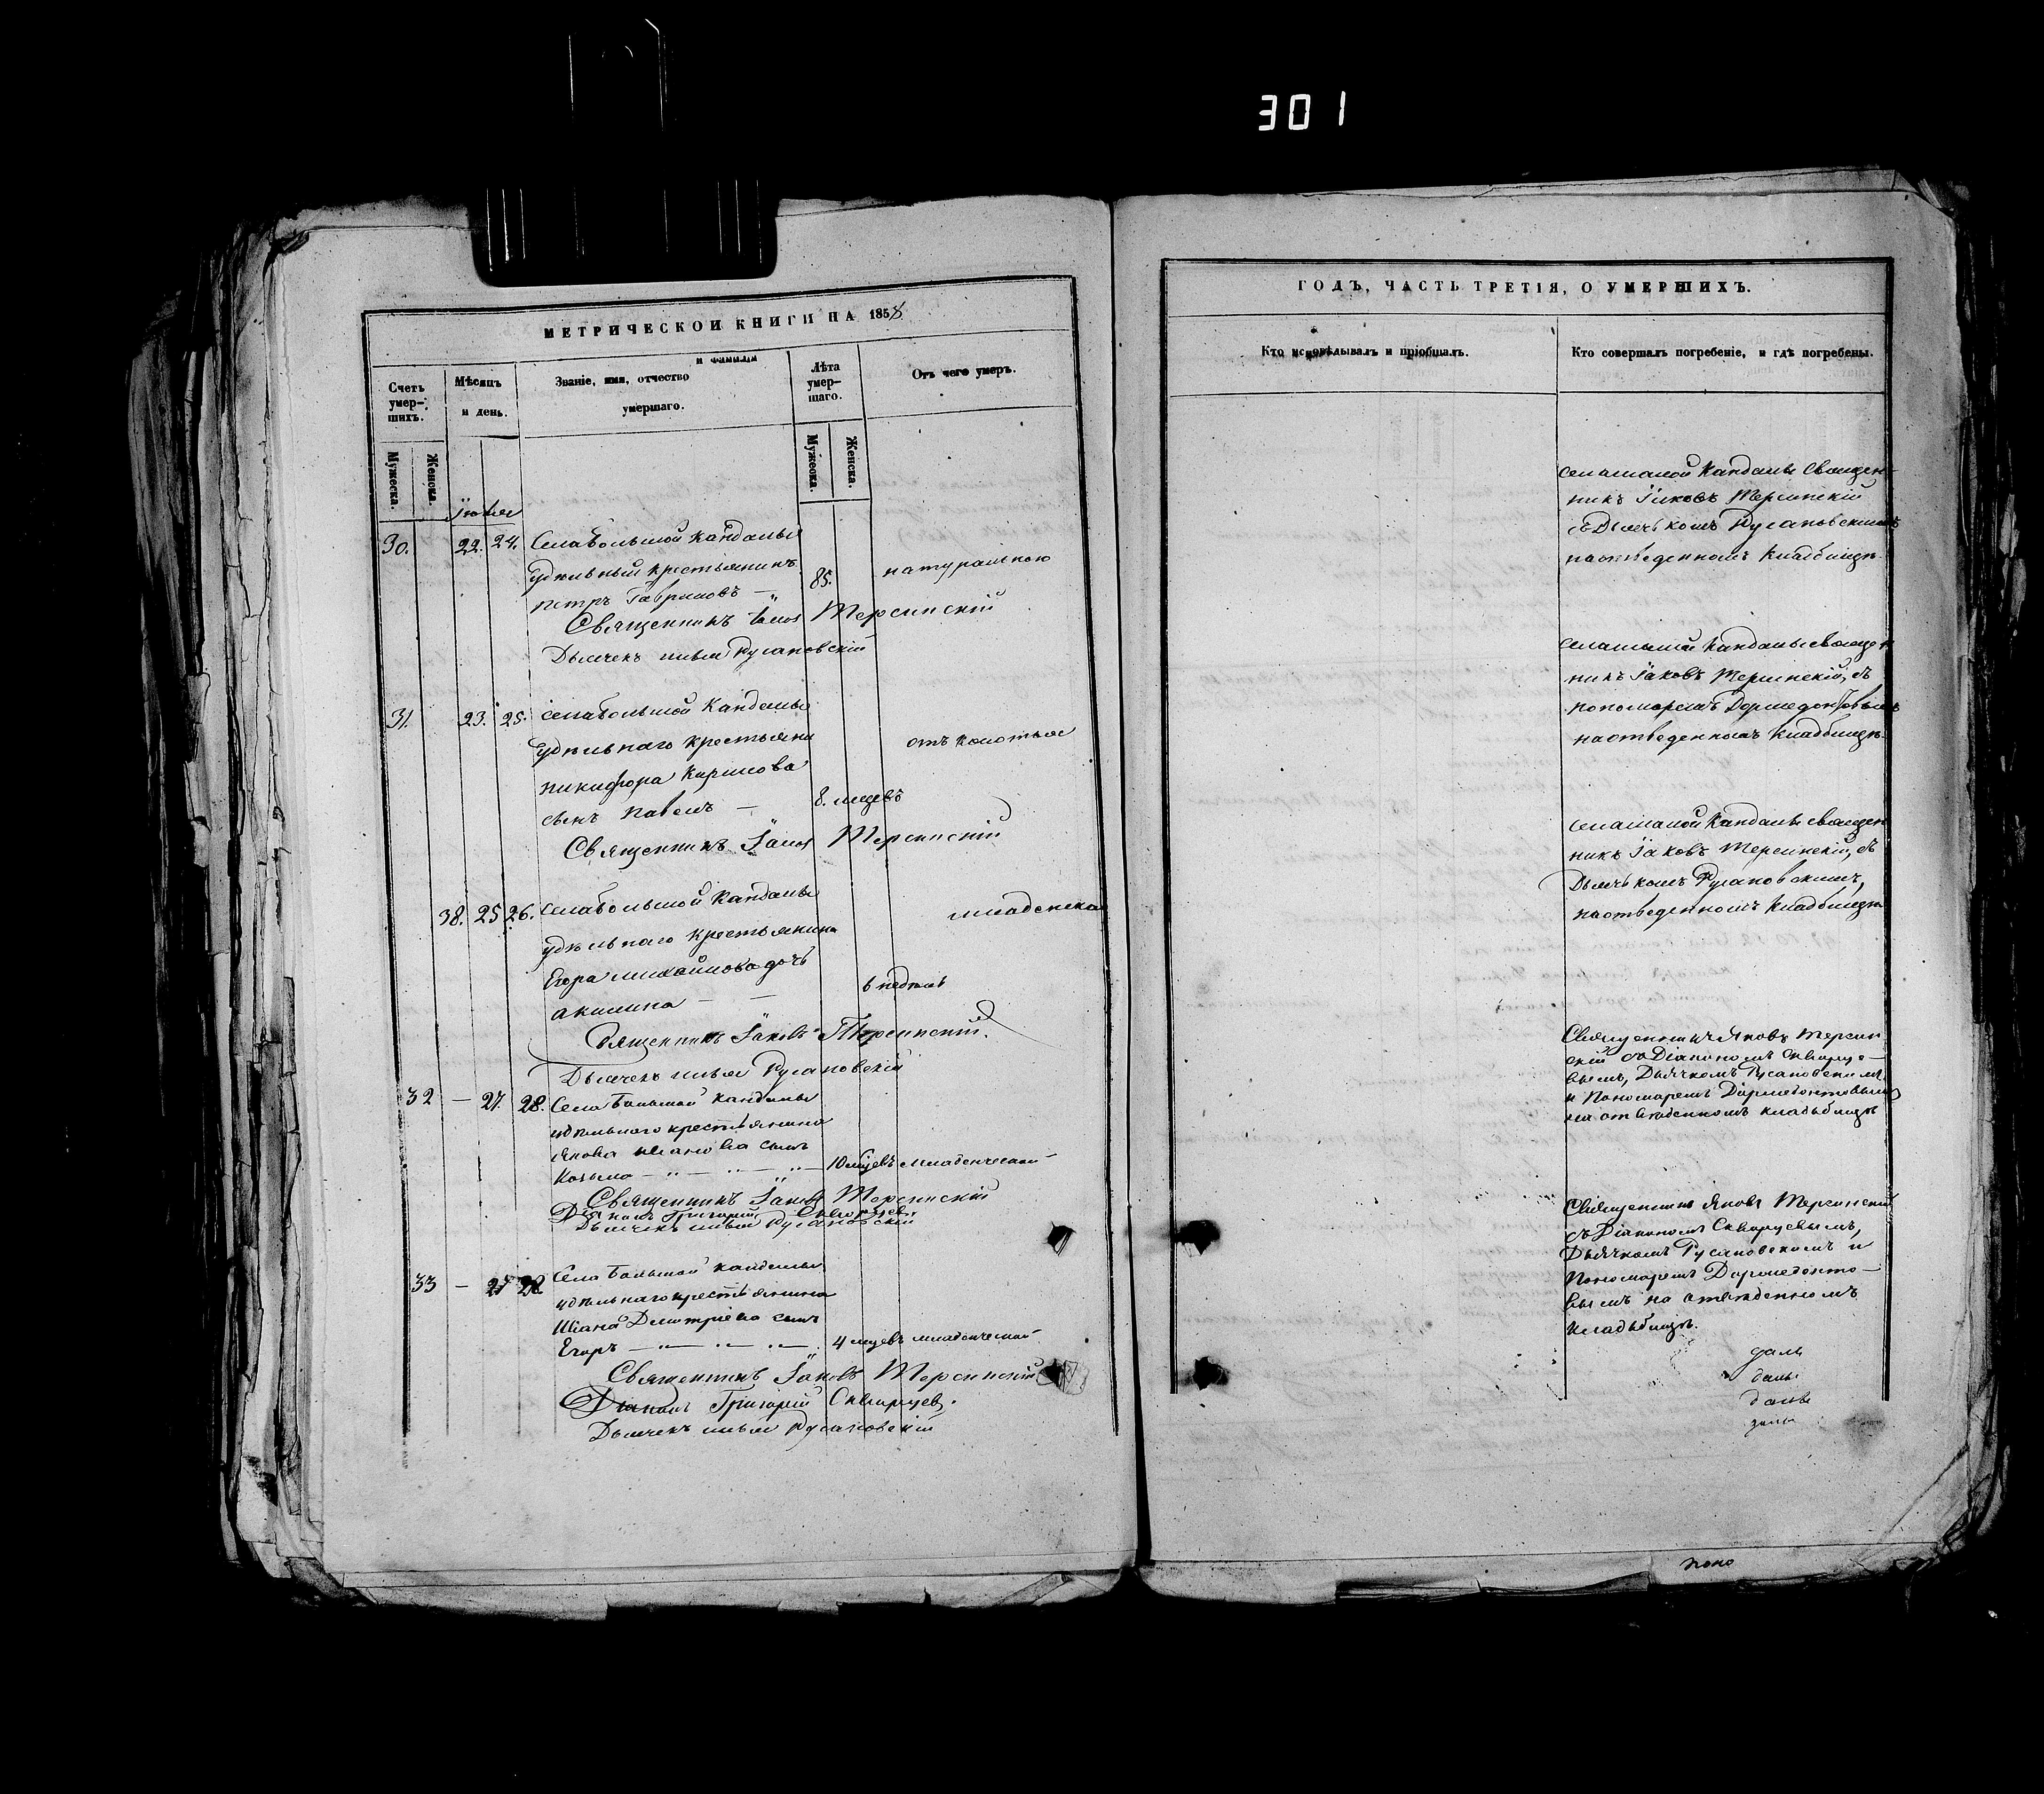 301
МЕТРИЧЕСКОЙ КНИГИ НА 1858
Счетъ умер-шихъ.
Мѣсяцъ и день.
Званіе, имя, отчество и фамилія умершаго.
Лѣта умер-шаго.
Отъ чего умеръ.
Мужеска.
Женска.
Мужеска.
Женска.
30. 22. 24. Села большой Кандалы
удѣльный крестьянинъ
Петръ Гавриловъ — 85. натуральною
Священникъ Іаковъ Терсинскій
Дьячекъ Илья Русановскій
31. 23. 25. Села большой Кандалы
удѣльнаго крестьяни
Никифора Карпова отъ колотья
сынъ Павелъ — 8. мцевъ
Священникъ Іаковъ Терсинскій
38. 25 26. Села большой Кандалы младенческ
удѣльнаго крестьянина
Егора Михайлова дочь
Акилина — — 6 недѣль
Священникъ Іаковъ Терсинскій.
Дьячекъ Илья Русановскій
32 — 27. 28. Села Большой Кандалы
удѣльнаго крестьянина
Якова Иванова сынъ
Козьма — 10 мцевъ младенческой
Священникъ Іаковъ Терсинскій
Діаконъ Григорій Скворцевъ
Дьячекъ Илья Русановскій
33 — 27 28 Села Большой Кандалы
удѣльнаго крестьянина
Ивана Дмитріева сынъ
Егоръ — 4 мцевъ младенческой
Священникъ Іаковъ Терсинскій
Діаконъ Григорій Скворцевъ.
Дьячекъ Илья Русановскій
ГОДЪ, ЧАСТЬ ТРЕТІЯ, О УМЕРШИХЪ.
Кто исповѣдывалъ и пріобщалъ.
Кто совершалъ погребеніе, и гдѣ погребены.
Села малой Кандалы Священ-
никъ Іаковъ Терсинскій
съ Дьячкомъ Русановскимъ
на отведенномъ Кладбищѣ.
Села малой Кандалы священ
никъ Іаковъ Терсинскій, съ
пономаремъ Дормедонтовымъ
на отведенномъ Кладбищѣ.
Села малой Кандалы священ
никъ Іаковъ Терсинскій, съ
Дьячькомъ Русановскимъ,
на отведенномъ Кладбищѣ
Священникъ Яковъ Терсин
скій съ Діакономъ Скворце-
вымъ, Дьячкомъ Русановскимъ
и Пономаремъ Дормедонтовымъ
на отведенномъ кладбищѣ
Священникъ Яковъ Терсинскій
съ Діакономъ Скворцевымъ,
Дьячкомъ Русановскимъ и
Пономаремъ Дормедонто-
вымъ на отведенномъ
Кладбищѣ.